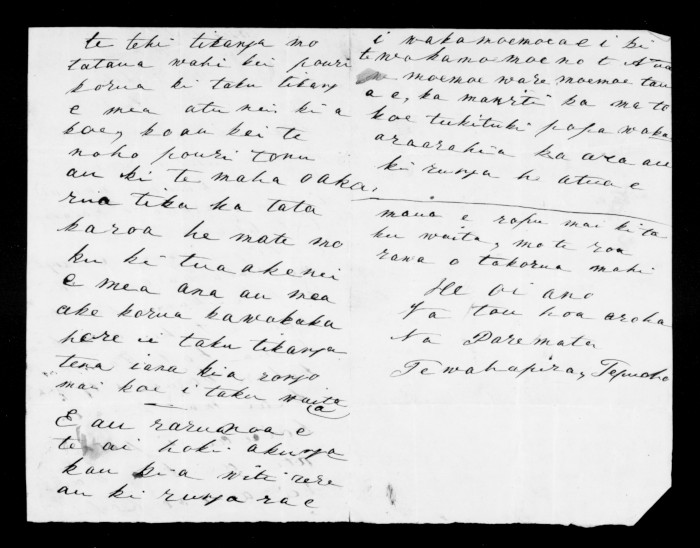 te tehi tikanga mo
tataua wahi kei pouri
korua ki taku tikang
e mea atu nei ki a
koe, ko au kei te
noho pouri tonu
au ki te maha o aka,
rua tika ka tata
ka roa he mate mo
ku ki tua ake nei
e mea ana au mea
ake korua kawakaka
here ii taku tikanga
tena iana kia rongo
mai koe i taku waita
E au raru noa e
te ai hoki akunga
kau kia witi rere
au ki runga ra e
i wakamoemoeae i ki
te wakamomoe no t Atua
moemoe ware moemoe tau
a e, ka ma to
koe tukituki popa waka
araarahia ka ara au
ki runga he atua e
maua e ropu mai ki ta
ku waita, mo te roa
rawa o takorua mahi
He oi ano
Na tou hoa aroha
Na Paremata
Te wahapiro, Tepuoho